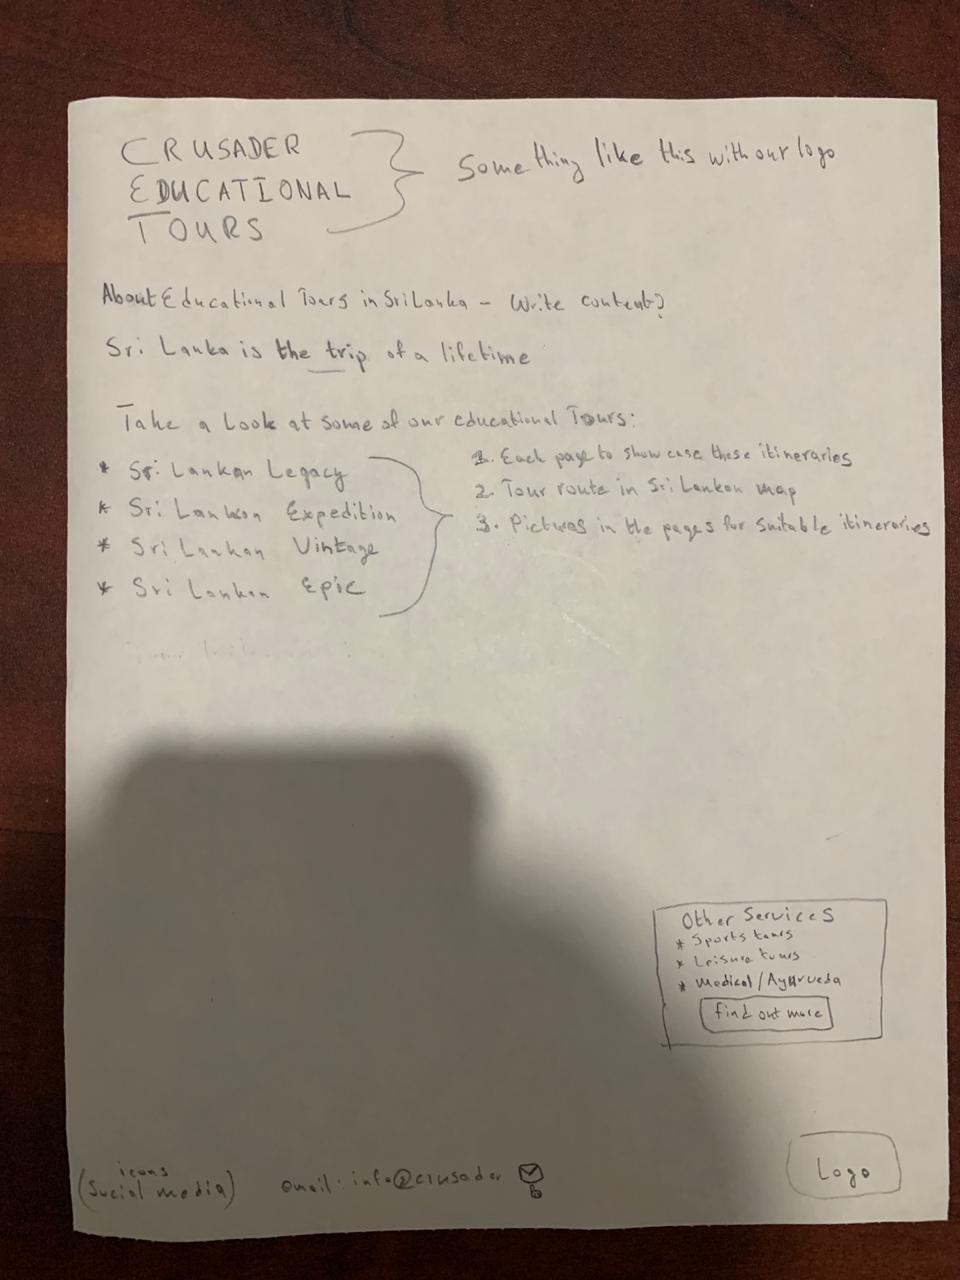 CRUSADER
EDUCATIONAL
TOURS
Something like this with our logo
About Educational Tours in Sri Lanka - Write content?
Sri Lanka is the trip of a lifetime
Take a Look at some of our educational Tours:
* Sri Lankan Legacy
* Sri Lankan Expedition
* Sri Lankan Vintage
* Sri Lankan Epic
1. Each page to show case these itineraries
2. Tour route in Sri Lankan map
3. Pictures in the pages for suitable itineraries
Other Services
* Sports tours
* Leisure tours
* Medical/Ayurveda
find out more
icons
(Social media)
email: info@crusader
Logo